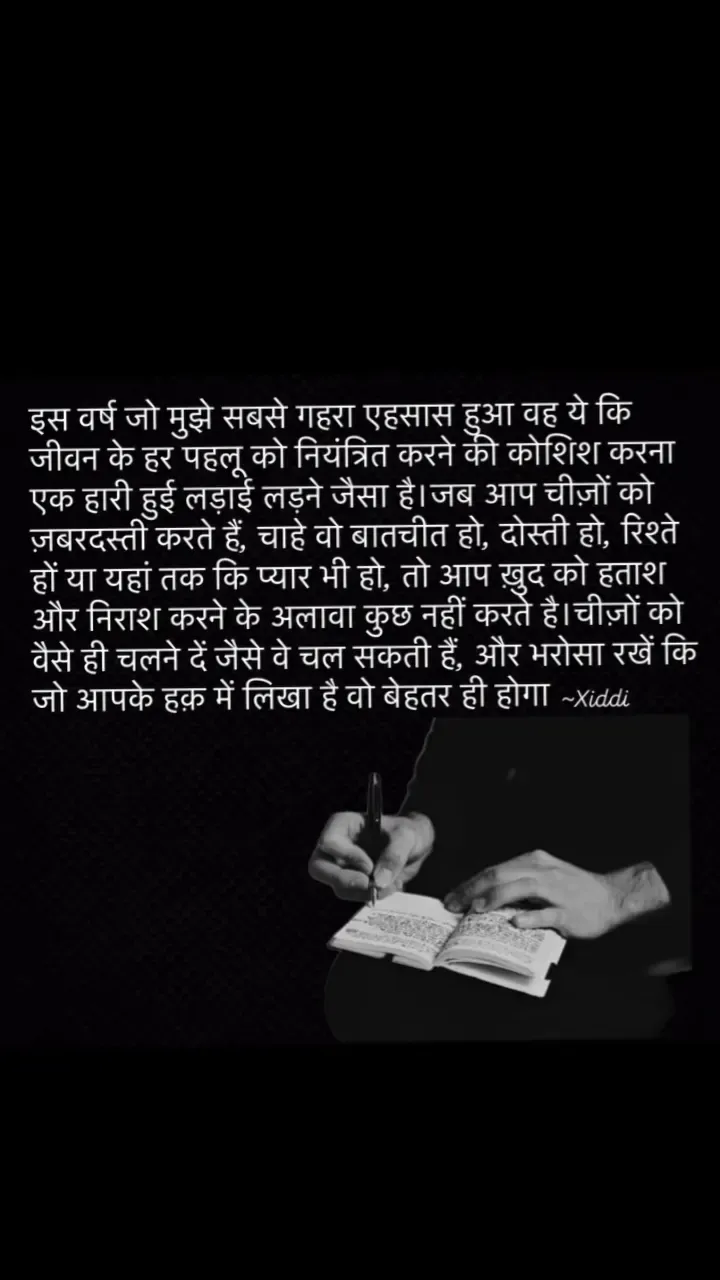 इस वर्ष जो मुझे सबसे गहरा एहसास हुआ वह ये कि
जीवन के हर पहलू को नियंत्रित करने की कोशिश करना
एक हारी हुई लड़ाई लड़ने जैसा है।जब आप चीज़ों को
ज़बरदस्ती करते हैं, चाहे वो बातचीत हो, दोस्ती हो, रिश्ते
हों या यहां तक कि प्यार भी हो, तो आप ख़ुद को हताश
और निराश करने के अलावा कुछ नहीं करते है।चीज़ों को
वैसे ही चलने दें जैसे वे चल सकती हैं, और भरोसा रखें कि
जो आपके हक़ में लिखा है वो बेहतर ही होगा ~Xiddi